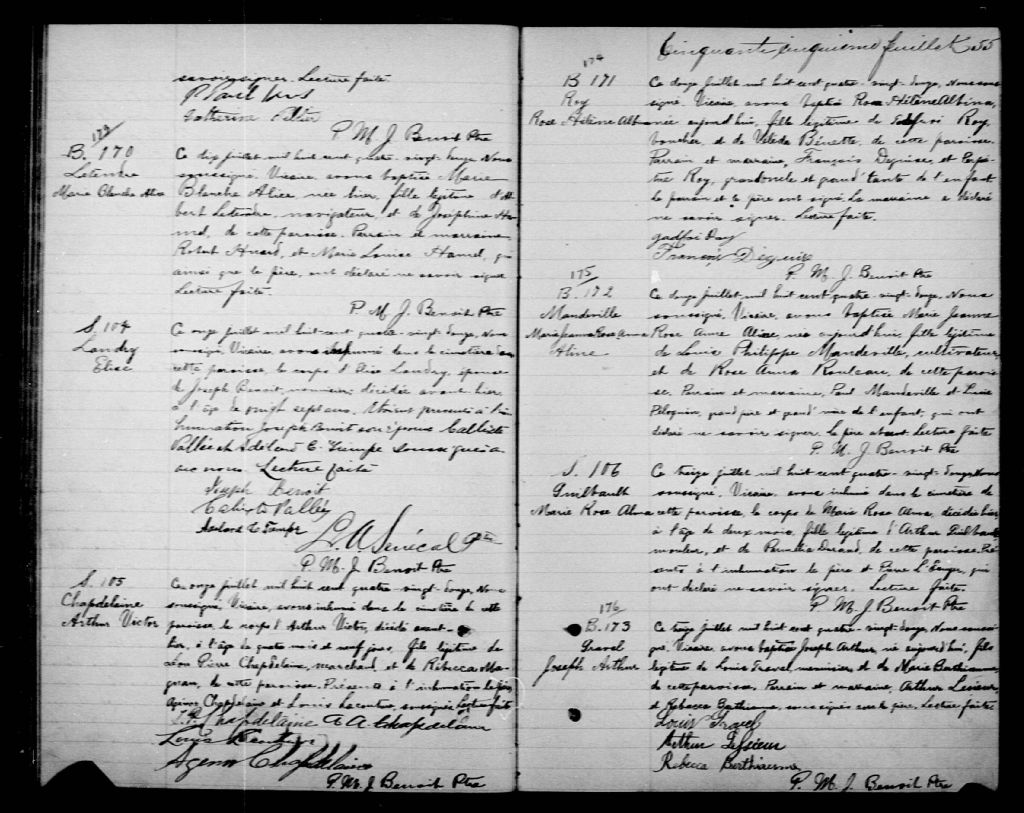 savoir signer. Lecture faite
P. M. J. Benoit Ptre
B. 170
Letendre
Marie Blanche Alice
Ce dix juillet mil huit cent quatre-vingt-douze, Nous
soussigné, Vicaire, avons baptisé Marie
Blanche Alice, née hier, fille légitime d'Al-
bert Letendre, navigateur, et de Joséphine Ha-
mel, de cette paroisse. Parrain et marraine
Robert Huard, et Marie Louise Hamel, qui
ainsi que le père, ont déclaré ne savoir signer
Lecture faite.
P. M. J. Benoit Ptre
S. 104
Landry
Elise
Ce onze juillet mil huit cent quatre-vingt-douze, Nous
soussigné, Vicaire, avons inhumé dans le cimetière de
cette paroisse, le corps d'Elise Landry, épouse
de Joseph Benoit, menuisier, décédée avant-hier,
à l'âge de sept ans. Etaient présents à l'in-
humation Joseph Benoit son époux Calliste
Vallée et Adélard E. Trempe soussignés
avec nous Lecture faite
Joseph Benoit
Calixte Vallée
Adélard E Trempe
L. A. Sénécal Ptre
P. M. J. Benoit Ptre
S. 105
Chapdelaine
Arthur Victor
Ce onze juillet mil huit cent quatre-vingt-douze, Nous
soussigné, Vicaire, avons inhumé dans le cimetière de cette
paroisse, le corps d'Arthur Victor, décédé avant-
hier, à l'âge de quatre mois et neuf jours, fils légitime de
Léon Pierre Chapdelaine, marchand, et de Rébecca Ma-
gnan, de cette paroisse. Présents à l'inhumation le père,
Agénor Chapdelaine et Louis Lacouture, soussignés Lecture faite
L. P. Chapdelaine A. A. Chapdelaine
Louis
Agenor Chapdelaine
P. M. J. Benoit Ptre
Cinquante cinquième feuillet 55
174
B 171
Roy
Rose Hélène Albina
Ce douze juillet mil huit cent quatre-vingt-douze, Nous sous-
signé, Vicaire, avons baptisé Rose Hélène Albina,
née aujourd'hui, fille légitime de Godfroi Roy,
boucher, et de Véléda Bérette, de cette paroisse.
Parrain et marraine, François Déguise, et
Roy, grand oncle et grand'tante de l'enfant
le parrain et le père ont signé. La marraine a déclaré
ne savoir signer. Lecture faite.
François Déguise
P. M. J. Benoit Ptre
175
B. 172
Mandeville
Marie Jeanne Rose Anna
Aline
Ce douze juillet mil huit cent quatre-vingt-douze, Nous
soussigné, Vicaire, avons baptisé Marie Jeanne
Rose Anna Aline, née aujourd'hui, fille légitime
de Louis Philippe Mandeville, cultivateur,
et de Rose Anna Rouleau, de cette parois-
se. Parrain et marraine, Paul Mandeville et Lucie
Péloquin, grand père et grand'mère de l'enfant, qui ont
déclaré ne savoir signer, le père absent Lecture faite
P. M. J. Benoit Ptre
S. 106
Guilbault
Marie Rose Alma
Ce treize juillet mil huit cent quatre-vingt-douze, Nous
soussigné, Vicaire, avons inhumé dans le cimetière de
cette paroisse, le corps de Marie Rose Alma, décédée hier
à l'âge de deux mois, fille légitime d'Arthur Guilbault
mouleur, et de Durand, de cette paroisse. Pré-
sents à l'inhumation le père et Pierre qui
ont déclaré ne savoir signer. Lecture faite.
P. M. J. Benoit Ptre
176
B. 173
Gravel
Joseph Arthur
Ce treize juillet mil huit cent quatre-vingt-douze, Nous soussi-
gné, Vicaire, avons baptisé Joseph Arthur, né aujourd'hui, fils
légitime de Louis Gravel, menuisier, et de Marie Berthiaume,
de cette paroisse. Parrain et marraine, Arthur Lésieur,
et Rébecca Berthiaume, soussignés avec le père, Lecture faite
Louis Gravel
Arthur Lésieur
Rébecca Berthiaume
P. M. J. Benoit Ptre